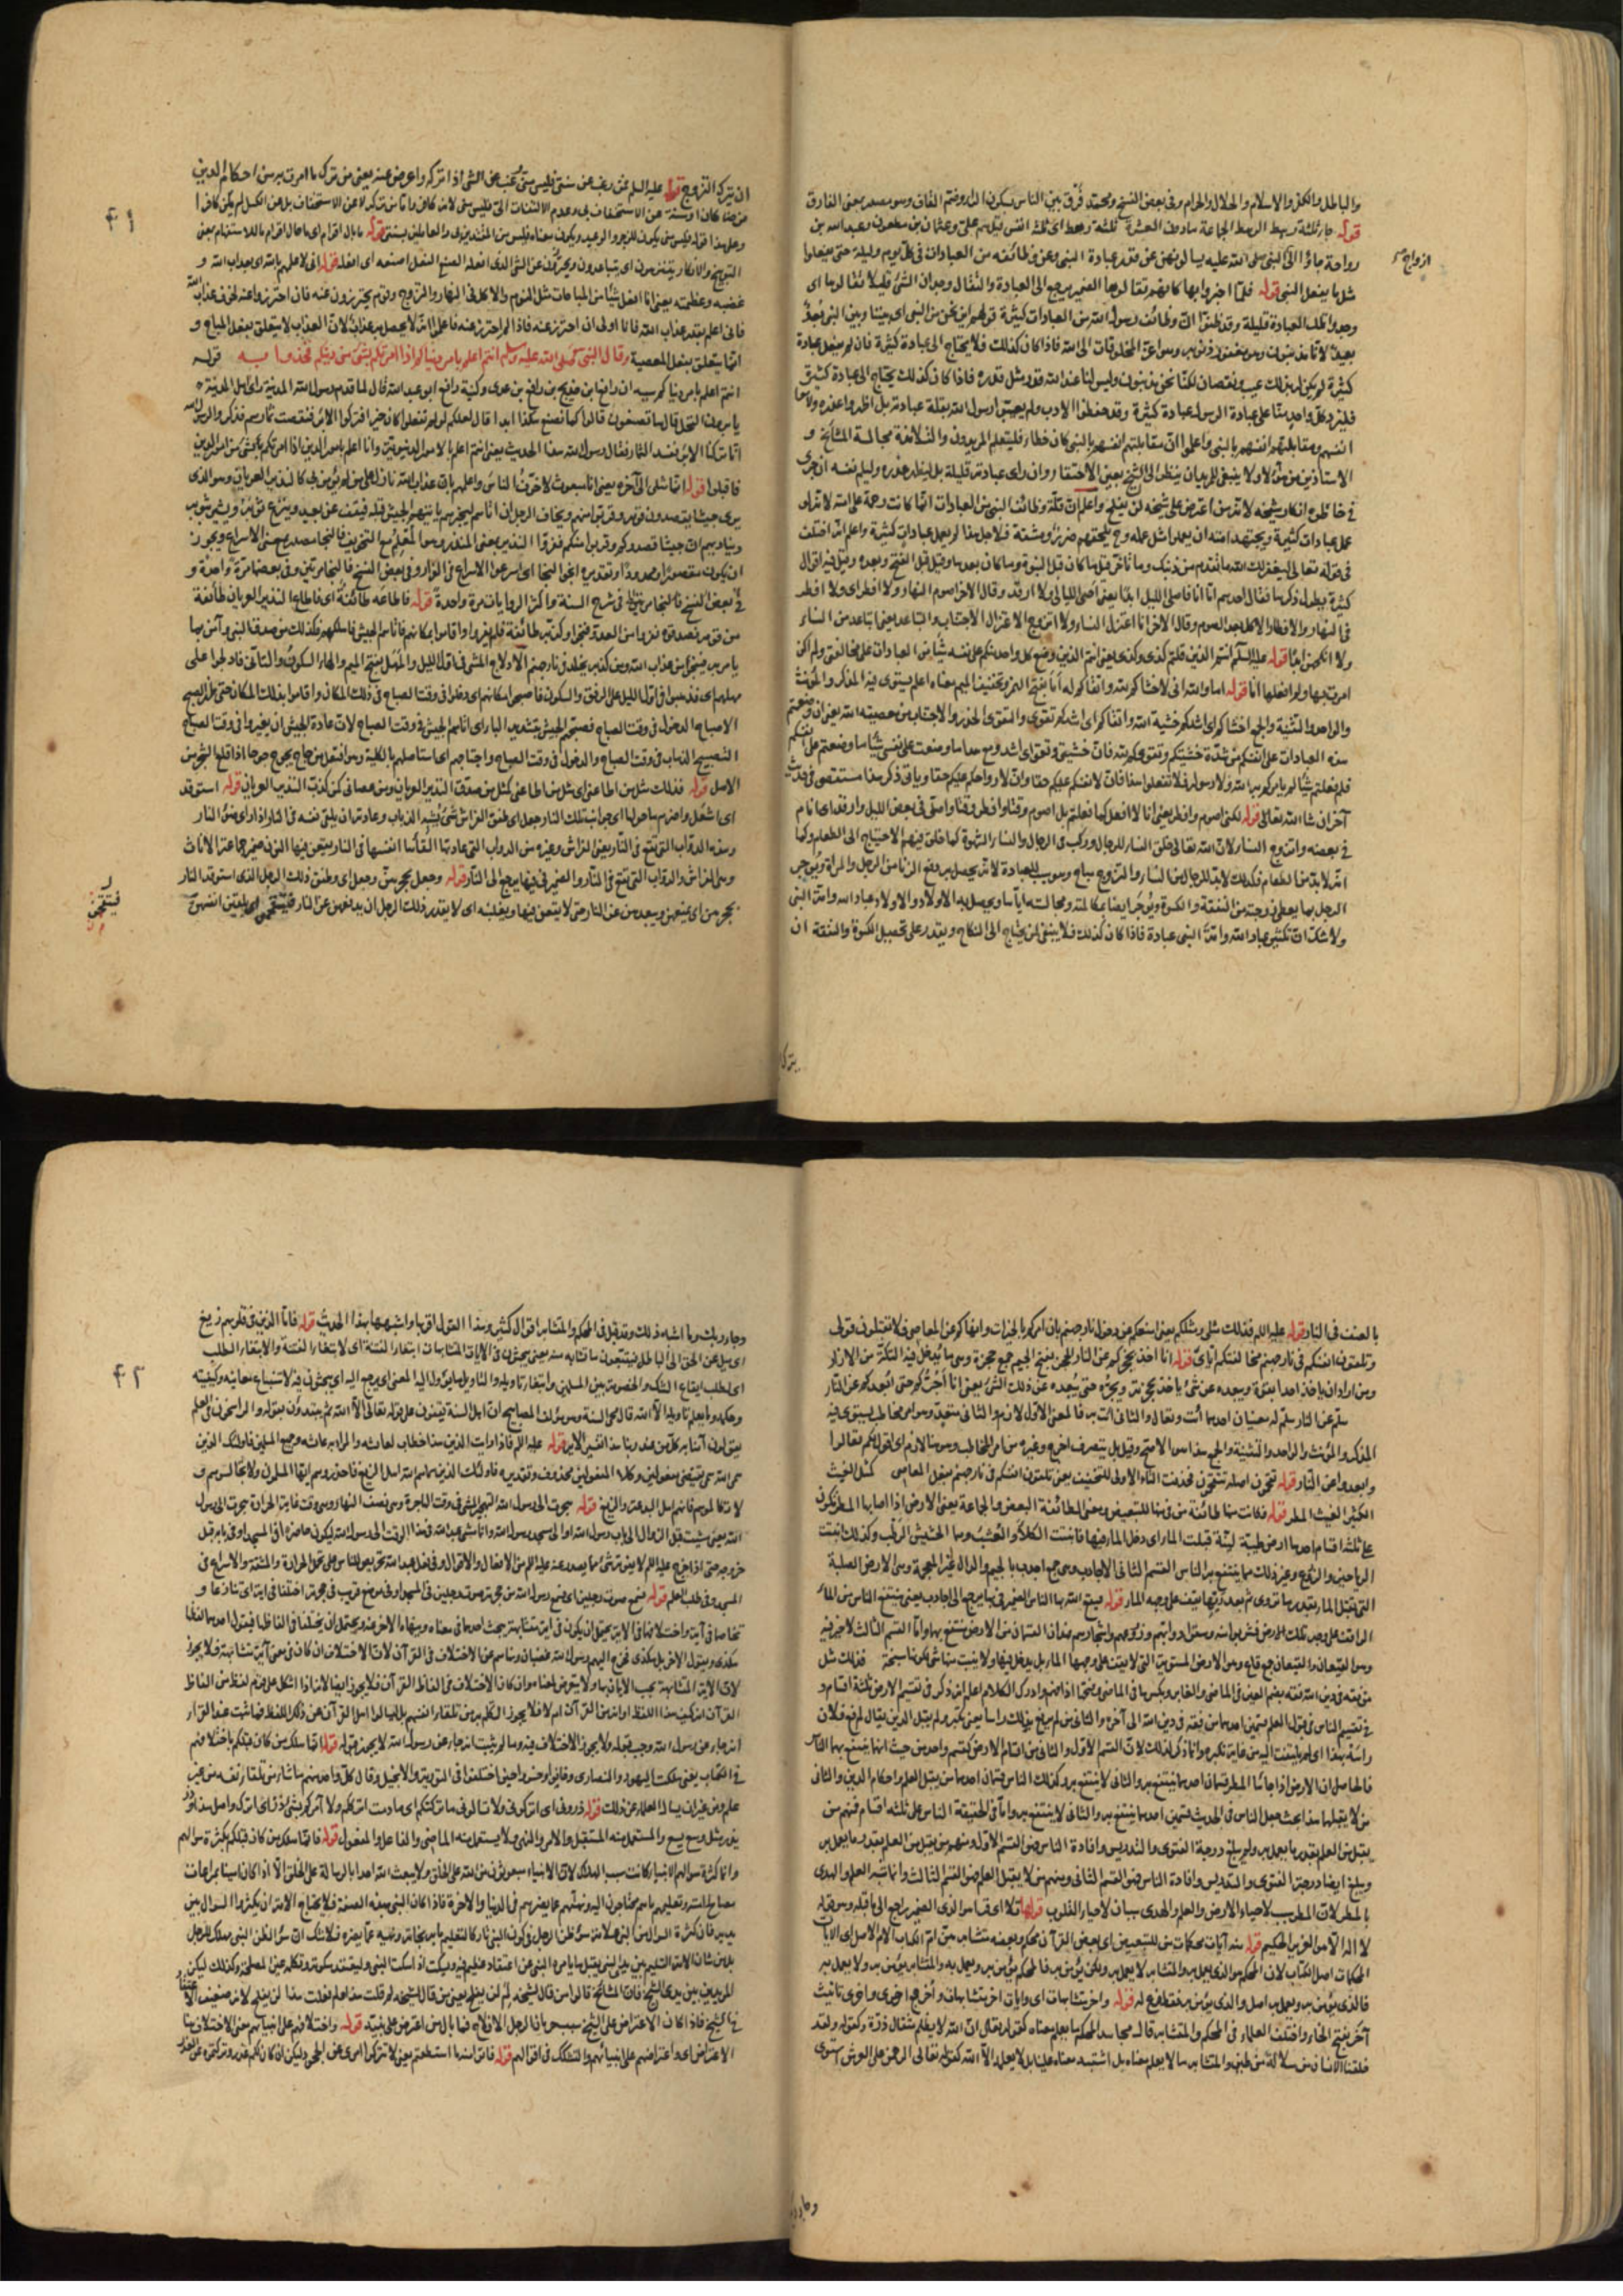 والباطل والكفر والاسلام والحلال والحرام وفى بعض النسخ ومحمد فرق بين الناس بسكون الراء وفتح القاف وهو مصدر بمعنى الفارق
قوله جاء ثلثة رهط الرهط الجماعة ما دون العشرة ثلثة رهط اى ثلثة انفس قيل هم على وعثمان بن مظعون وعبد الله بن
رواحة جاؤا الى النبى صلى الله عليه يسألونهن عن قدر عبادة النبى وعن وظائفه من العبادات فى كل يوم وليلة حتى يفعلوا
ازواج
مثل ما يفعل النبى قوله فلما اخبروا بها كانهم تقالوها الضمير يرجع الى العبادة والتقال وجدان الشئ قليلا تقالوها اى
وجدوا تلك العبادة قليلة وقد ظنوا ان وظائف رسول الله من العبادات كثيرة قولهم اين نحن من النبى اى بيننا وبين النبى بعد
بعيد لانا مذنبون ومن مغفور ذنوبه وهو اعز المخلوقات الى الله فاذا كان كذلك فلا يحتاج الى عبادة كثيرة فان لم يفعل عبادة
كثيرة لم يكن له بذلك عيب ونقصان لكنا نحن مذنبون وليس لنا عند الله قدر مثل قدره فاذا كان كذلك يحتاج الى عبادة كثيرة
فليزد كل واحد منا على عبادة الرسول عبادة كثيرة وقد حفظوا الادب ولم يعيبوا رسول الله بقلة عبادته بل اظهروا عذره ولاموا
انفسهم ومقابلتهم انفسهم بالنبى واعلموا ان مقابلتهم انفسهم بالنبى كان خطاء فليتعلم المريدون والتلامذة مجالسة المشايخ و
الاستاذين من هؤلاء ولا ينبغى للمريد ان ينظر الى الشيخ بعين الاحتقار وان راى عبادته قليلة بل ليظهر عذره وليلم نفسه ان جرى
فى خاطره انكار شيخه لانه من اعترض على شيخه لن يفلح واعلم ان قلة وظائف النبى من العبادات انما كانت رحمة على امته لانه لو
عمل عبادات كثيرة ويجتهد امته ان يعملوا مثل عمله وح يلحقهم ضرر ومشقة فلاجل هذا لم يعمل عبادات كثيرة واعلم انه اختلف
فى قوله تعالى ليغفر لك الله ما تقدم من ذنبك وما تأخر قيل ما كان قبل النبوة وما كان بعدها وقيل قبل الفتح وبعده وقيل فيه اقوال
كثيرة يطول ذكرها فقال احدهم اما انا فاصلى الليل ابدا يعنى اصلى الليالى ولا ارقد وقال الاخر اصوم النهار ولا افطر اى ولا افطر
فى النهار والافطار الاكل بعد الصوم وقال الاخر انا اعتزل النساء ولا اتزوج الاعتزال الاجتناب والتباعد يعنى اتباعد من النساء
ولا انكحهن ابدا قوله عليه السلم انتم الذين قلتم كذى وكذى يعنى انتم الذين وضع كل واحد منكم على نفسه شيئا من العبادات على مخالفتى ولم اكن
امرت بها ولم افعلها انا قوله اما والله انى لاخشاكم لله واتقاكم له اما بفتح الهمزة وتخفيف الميم معناه اعلم يستوى فيه المذكر والمؤنث
والواحد والتثنية والجمع اخشاكم اى اشدكم خشية الله واتقاكم اى اشدكم تقوى والتقوى الحذر والاجتناب من معصية الله يعنى ان وضعتم
هذه العبادات على انفسكم من شدة خشيتكم وتقويكم لله فان خشيتى وتقواى اشد ومع هذا ما وضعت على نفسى شيئا مما وضعتم على انفسكم
فلم فعلتم شيئا لم يامركم به الله ولا رسوله فلا تفعلوا هذا فان لانفسكم عليكم حقا وان لازواجكم عليكم حقا وياتى ذكر هذا مستقصى فى حديث
آخر ان شاء الله تعالى قوله لكنى اصوم وافطر يعنى انا لا افعل كما فعلتم بل اصوم وقتا وافطر وقتا واصلى فى بعض الليل وارقد اى انام
فى بعضه واتزوج النساء لان الله تعالى خلق النساء للرجال وركب فى الرجال والنساء الشهوة كما خلق فيهم الاحتياج الى الطعام وكما
انه لا بد من الطعام فكذلك لا بد للرجال من النساء والتزوج مباح وسبب للعبادة لانه يحصل به دفع الزنا من الرجل والمرأة ويؤجر
الرجل بما يعطى زوجته من النفقة والكسوة ويؤجر ايضا بمكالمته ومجالسته اياها ويحصل به الاولاد والاولاد عباد الله وامة النبى
ولا شك ان تكثير عباد الله وامة النبى عبادة فاذا كان كذلك فلا ينبغى لمن يحتاج الى النكاح ويقدر على تحصيل الكسوة والنفقة ان
يترك
٤١
ان يترك التزوج قوله عليه السلم فمن رغب عن سنتى فليس منى رغب عن الشئ اذا تركه واعرض عنه يعنى من ترك ما امرت به من احكام الدين
فرضا كان او سنة عن الاستخفاف بى وعدم الالتفات الى فليس منى لانه كافر واما من ترك لا عن الاستخفاف بل عن الكسل لم يكن كافرا
وعلى هذا قوله فليس منى يكون للزجر والوعيد ويكون معناه فليس من المقتدين بى والعاملين بسنتى قوله ما بال اقوام اى ما حال اقوام ما للاستفهام بمعنى
التوبيخ والانكار يتنزهون اى يتباعدون ويحترزون عن الشئ الذى افعله الصنع الفعل اصنعه اى افعله قوله انى لاعلمهم بالله اى بعذاب الله و
غضبه وعظمته يعنى انا افعل شيئا من المباحات مثل النوم والاكل فى النهار والتزوج وقوم يحترزون عنه فان احترزوا عنه لخوف عذاب الله
فانى اعلم بقدر عذاب الله فانا اولى ان احترز عنه فاذا لم احترز عنه فاعلموا انه لا يحصل به عذاب لان العذاب لا يتعلق بفعل المباح و
انما يتعلق بفعل المعصية وقال النبى صلى الله عليه وسلم انتم اعلم بامر دنياكم اذا امرتكم بشئ من دينكم فخذوا به قوله
انتم اعلم بامر دنياكم سببه ان رافع بن خديج بن رافع بن عدى وكنية رافع ابو عبد الله قال لما قدم رسول الله المدينة راى اهل المدينة
يابرون النخل قال ما تصنعون قالوا كنا نصنع هكذا ابدا قال لعلكم لو لم تفعلوا كان خيرا فتركوا الابر فنقصت ثمارهم فذكروا لرسول الله
انا تركنا الابر ففسد الثمار فقال رسول الله هذا الحديث يعنى انتم اعلم بالامور الدنيوية وانا اعلم بامور الدين اذا امرتكم بشئ من امور الدين
فاقبلوا قوله انما مثلى الى آخره يعنى انا مبعوث لاخوف الناس واعلمهم بان عذاب الله نازل على من لم يؤمن بى كالنذير العريان وهو الذى
يرى جيشا يقصدون قومه وقربوا منهم ويخاف الرجل ان اتاهم ليخبرهم باتيانهم الجيش قبله فيقف على جبل وينزع ثوبه ويشير بثوبه
ويناديهم ان جيشا قصدوكم وقربوا منكم ففروا النذير بمعنى المنذر وهو المعلم مع التخويف فالنجا مصدر بمعنى الاسراع ويجوز
ان يكون مقصورا وممدودا وتقديره انجوا النجا اى اسرعوا الاسراع فى الفرار وفى بعض النسخ فالنجا مرتين وفى بعضها مرة واحدة و
فى بعض النسخ فالنجا مرتين فى شرح السنة واكثر الروايات مرة واحدة قوله فاطاعه طائفة اى فاطاع النذير العريان طائفة
من قومه فصدقوه ففروا من العدو فنجوا وكذبه طائفة فلم يفروا واقاموا مكانهم فاتاهم الجيش فاهلكهم فكذلك من صدقنا لنبى وآمن بما
يامر به ينجو من عذاب الله ومن كذبه يخلد فى نار جهنم الادلاج المشى فى اول الليل والمهل بفتح الميم والهاء السكون والتأنى فادلجوا على
مهلهم اى فذهبوا فى اول الليل على الرفق والسكون فاصبحوا مكانهم اى دخلوا فى وقت الصباح فى ذلك المكان واقاموا بذلك المكان حتى
الاصباح الدخول فى وقت الصباح فصبحهم الجيش بتشديد الباء اى اتاهم الجيش فى وقت الصباح لان عادة الجيش ان يغيروا فى وقت الصباح
التصبيح الذهاب فى وقت الصباح والدخول فى وقت الصباح واجتاحهم اى استاصلهم بالكلية وهو افتعل من جاح يجوح جوحا اذا قلع الشجر من
الاصل قوله فذلك مثل من اطاعنى اى مثل من اطاعنى كمثل من صدق النذير العريان ومن عصانى كمن كذب النذير العريان قوله استوقد
اى اشعل واضرم ما حولها اى جوانب تلك النار جعل اى طفق الفراش شئ يشبه الذباب وعادته ان يلقى نفسه فى النار اذا راى ضوء النار
وهذه الدواب التى تقع فى النار يعنى الفراش وغيره من الدواب التى عادتها القاء انفسها فى النار يقعن فيها النون ضمير جماعة الاناث
وهى الفراش والدواب التى تقع فى النار والضمير فى فيها يرجع الى النار قوله وجعل يحجزهن وجعل اى وطفق ذلك الرجل الذى استوقد النار
يحجزهن اى يمنعهن ويبعدهن عن النار حتى لا يقعن فيها ويغلبنه اى لا يقدر ذلك الرجل ان يدفعهن عن النار فيتقحمن اى يلقين انفسهن
فيتقحمن
بالعنف فى النار قوله عليه السلم فذلك مثلى ومثلكم يعنى امنعكم عن دخول نار جهنم بان امركم بالخيرات وانهاكم عن المعاصى فلا تقبلون قولى
وتلقون انفسكم فى نار جهنم مخالفتكم اياى قوله انا اخذ بحجزكم عن النار الحجز بفتح الجيم جمع حجزة وهى ما يدخل فيه التكة من الازار
ومن اراد ان ياخذ احدا بقوة ويبعده عن شئ ياخذ بحجزته ويجره حتى يبعده عن ذلك الشئ يعنى انا آخذكم حتى ابعدكم عن النار
هلم عن النار هلم له معنيان احدهما ائت وتعال والثانى ائت به فالمعنى الاول لازم والثانى متعد وهو امر مخاطب يستوى فيه
المذكر والمؤنث والواحد والتثنية والجمع هذا هو الاصح وقيل بل يتصرف اخرج وغيره من امر المخاطب وهو هنا لازم اى اقول لكم تعالوا
وابعدوا عن النار قوله تقحمون اصله تتقحمون فحذفت التاء الاولى للتخفيف يعنى تلقون انفسكم فى نار جهنم بفعل المعاصى كمثل الغيث
الكثير الغيث المطر قوله فكانت منها طائفة من فى منها للتبعيض ومعنى الطائفة البعض والجماعة يعنى الارض اذا اصابها المطر تكون
على ثلثة اقسام احدها ارض طيبة لينة قبلت الماء اى دخل الماء فيها فانبتت الكلأ والعشب وهما الحشيش الرطب وكذلك انبتت
الرياحين والزروع وغير ذلك مما ينتفع به الناس القسم الثانى الاجادب وهى جمع اجدب بالجيم والدال غير المعجمة وهى الارض الصلبة
التى تقبل الماء بقدر ما تروى ثم بعد ريها يقف على وجهه الماء قوله فنفع الله بها الناس الضمير فى بها يرجع الى اجادب يعنى ينتفع الناس من الماء
الواقف على وجه تلك الارض فيشربوا منه وسقوا دوابهم وزروعهم واشجارهم فهذان القسمان من الارض منتفع بهما واما القسم الثالث لا خير فيه
وهو القيعان والقيعان جمع قاع وهو الارض المستوية التى لا يقف على وجهها الماء بل يدخل فيها ولا ينبت منها شئ لكونها سبخة فذلك مثل
من فقه فى دين الله فقه بضم العين فى الماضى والغابر وبكسرها فى الماضى وفتحها اذا فهم وادرك الكلام اعلم انه ذكر فى تقسيم الارض ثلثة اقسام و
فى تقسيم الناس فى قبول العلم قسمين احدهما من فقه فى دين الله الى آخره والثانى من لم يرفع بذلك راسا يعنى تكبر ولم يقبل الدين يقال لم يرفع فلان
راسه بهذا اى لم يلتفت اليه من غاية تكبره وانما ذكر كذلك لان القسم الاول والثانى من اقسام الارض كقسم واحد من حيث انهما ينتفع بهما الناس
فالحاصل ان الارض اذا جاءها المطر قسمان احدهما ينتفع به والثانى لا ينتفع به وكذلك الناس قسمان احدهما من يقبل العلم واحكام الدين والثانى
من لا يقبلها هذا بحث جعل الناس فى الحديث قسمين احدهما ينتفع به والثانى لا ينتفع به واما فى الحقيقة الناس على ثلثة اقسام فمنهم من
يقبل من العلم بقدر ما يعمل به ولم يبلغ درجة الفتوى والتدريس وافادة الناس فهو القسم الاول ومنهم من يقبل من العلم بقدر ما يعمل به
ويبلغ ايضا درجة الفتوى والتدريس وافادة الناس فهو القسم الثانى ومنهم من لا يقبل العلم فهو القسم الثالث وانما شبه العلم والهدى
بالمطر لان المطر سبب لاحياء الارض والعلم والهدى سببان لاحياء القلوب
لا اله الا هو العزيز الحكيم قوله منه آيات محكمات من للتبعيض اى بعض القرآن محكم وبعضه متشابه هن ام الكتاب الام الاصل اى الآيات
المحكمات اصل الكتاب لان المحكم هو الذى يعمل به والمتشابه لا يعمل به ولكن يؤمن به فالمحكم يؤمن به ويعمل به والمتشابه يؤمن به ولا يعمل به
فالذى يؤمن به ويعمل به اصل والذى يؤمن به فقط فرع له قوله واخر متشابهات اى وايات اخر متشابهات وأخر جمع اخرى واخرى تانيث
آخر بفتح الخاء واختلف العلماء فى المحكم والمتشابه قال مجاهد المحكم ما يعلم معناه كقوله تعالى ان الله لا يظلم مثقال ذرة وكقوله ولقد
خلقنا الانسان من سلالة من طين والمتشابه ما لا يعلم معناه بل اشتبه معناه علينا بل لا يعلمه الا الله كقوله تعالى الرحمن على العرش استوى
وجاء ربك
٤٢
وجاء ربك وما اشبه ذلك وقد قيل فى المحكم والمتشابه اقوال كثيرة وهذا القول اقربها واشبهها بهذا الحديث قوله فاما الذين فى قلوبهم زيغ
اى ميل عن الحق الى الباطل فيتبعون ما تشابه منه يعنى يبحثون فى الايات المتشابهات ابتغاء الفتنة اى لابتغاء الفتنة والابتغاء الطلب
اى لطلب ايقاع الشك والخصومة بين المسلمين وابتغاء تاويله والتاويل ما يؤل اليه المعنى اى يرجع اليه اى يبحثون فيه لاستنباط معانيه وكيفيته
وحكمه وما يعلم تاويله الا الله قال محيى السنة وهو مؤلف المصابيح ان اهل السنة يقفون على قوله تعالى الا الله ثم يبتدؤن بقوله والراسخون فى العلم
يقولون آمنا به كل من عند ربنا هذا تفسير الاية قوله عليه السلم فاذا رايت الذين هذا خطاب لعائشة والمراد به عائشة وجميع المسلمين فاولئك الذين
سمى الله سمى يقتضى مفعولين وكلا المفعولين محذوف وتقديره فاولئك الذين سماهم الله اهل الزيغ فاحذروهم ايها المسلمون ولا تجالسوهم و
لا تكالموهم فانهم اهل البدعة والزيغ قوله هجرت الى رسول الله التهجير المشى فى وقت الهاجرة وهى نصف النهار وهى وقت غاية الحرارة هجرت الى رسول
الله يعنى مشيت قبل الزوال الى باب رسول الله او الى مسجد رسول الله وانما مشى عبد الله فى هذا الوقت الى رسول الله ليكون حاضرا فى المسجد او فى بابه قبل
خروجه حتى اذا خرج عليه السلم لا يفوته شئ مما يصدر عنه عليه السلم من الافعال والاقوال وفى فعل عبد الله تحريض للناس على تحمل الحرارة والمشقة والاسراع فى
المسجد وفى طلب العلم قوله فسمع صوت رجلين اى فسمع رسول الله من حجرته صوت رجلين فى المسجد او فى موضع قريب فى حجرته اختلفا فى اية اى تنازعا و
تخاصما فى آية واختلافهما فى الاية يحتمل ان يكون فى اية متشابهة يبحث احدهما فى معناه وينهاه الاخر عنه ويحتمل ان يختلفا فى الفاظها فيقول احدهما لفظها
هكذى ويقول الاخر بل هكذى فخرج اليهم رسول الله غضبان ونهاهم عن الاختلاف فى القرآن لان الاختلاف ان كان فى معنى آية متشابهة فلا يجوز
لان الاية المتشابهة يجب الايمان بها ولا يتعرض لمعناها وان كان الاختلاف فى الفاظ القرآن فلا يجوز ايضا لانه اذا اشكل على قوم لفظ من الفاظ
القرآن انه كيف هذا اللفظ او انه من القرآن ام لا فلا يجوز التكلم به من تلقاء انفسهم بل ليسالوا اهل القرآن عن ذلك اللفظ فما ثبت عند القراء
انه جاء عن رسول الله وجب قبوله ولا يجوز الاختلاف فيه وما لم يثبت انه جاء عن رسول الله لا يجوز قبوله قوله انما هلك من كان قبلكم باختلافهم
فى الكتاب يعنى هلكت اليهود والنصارى حين اختلفوا فى التورية والانجيل وقال كل واحد منهم ما شاء من تلقاء نفسه من غير
علم ومن غير ان يسالوا العلماء عن ذلك قوله ذرونى اى اتركونى ولا تسالونى ما تركتكم اى ما دمت اترككم ولا آمركم بشئ ذر اى اترك واصل هذا وذر
يذر مثل وسع يسع والمستعمل منه المستقبل والامر والنهى ولا يستعمل منه الماضى والفاعل والمفعول قوله فانما هلك من كان قبلكم بكثرة سؤالهم
وانما كثرة سؤالهم الانبياء كانت سبب الهلاك لان الانبياء مبعوثون من الله على الخلق ولا يبعث الله احدا بالرسالة على الخلق الا اذا كان امينا بمراعات
مصالح امته وتعليمهم ما هم محتاجون اليه ونهيهم عما يضرهم فى الدنيا والاخرة فاذا كان النبى بهذه الصفة فلا يحتاج الامة ان يكثروا السؤال بين
يديه فان كثرة السؤال من النبى علامة سوء ظن الرجل فى كون النبى تاركا لتعليم ما به نجاته ونهيه عما يضره فلا شك ان سوء الظن بالنبى مهلك للرجل
بل من شان الامة التسليم بين يدى النبى بقبول ما يامره النبى عن اعتقاد عظيم فيه ويسكت اذا سكت النبى وليعتقد سكوته وتكلمه عين المصلحة وكذلك ليكن
المريد بين يدى الشيخ فان المشايخ قالوا من قال لشيخه لم لن يفلح يعنى من قال لشيخه لم قلت هذا او لم فعلت هذا لن يفلح لانه ضعيف الاعتقاد
فى الشيخ فاذا كان الاعتراض على الشيخ سبب حرمان الرجل الافلاح فما بال من اعترض على نبيه قوله واختلافهم على انبيائهم معنى الاختلاف هنا
الاعتراض اى واعتراضهم على انبيائهم والتشكك فى اقوالهم قوله فاتوا منه ما استطعتم يعنى لا تتركوا امرى عن العجز وليكن ان كان لكم عذر وتركتموه عن العذر